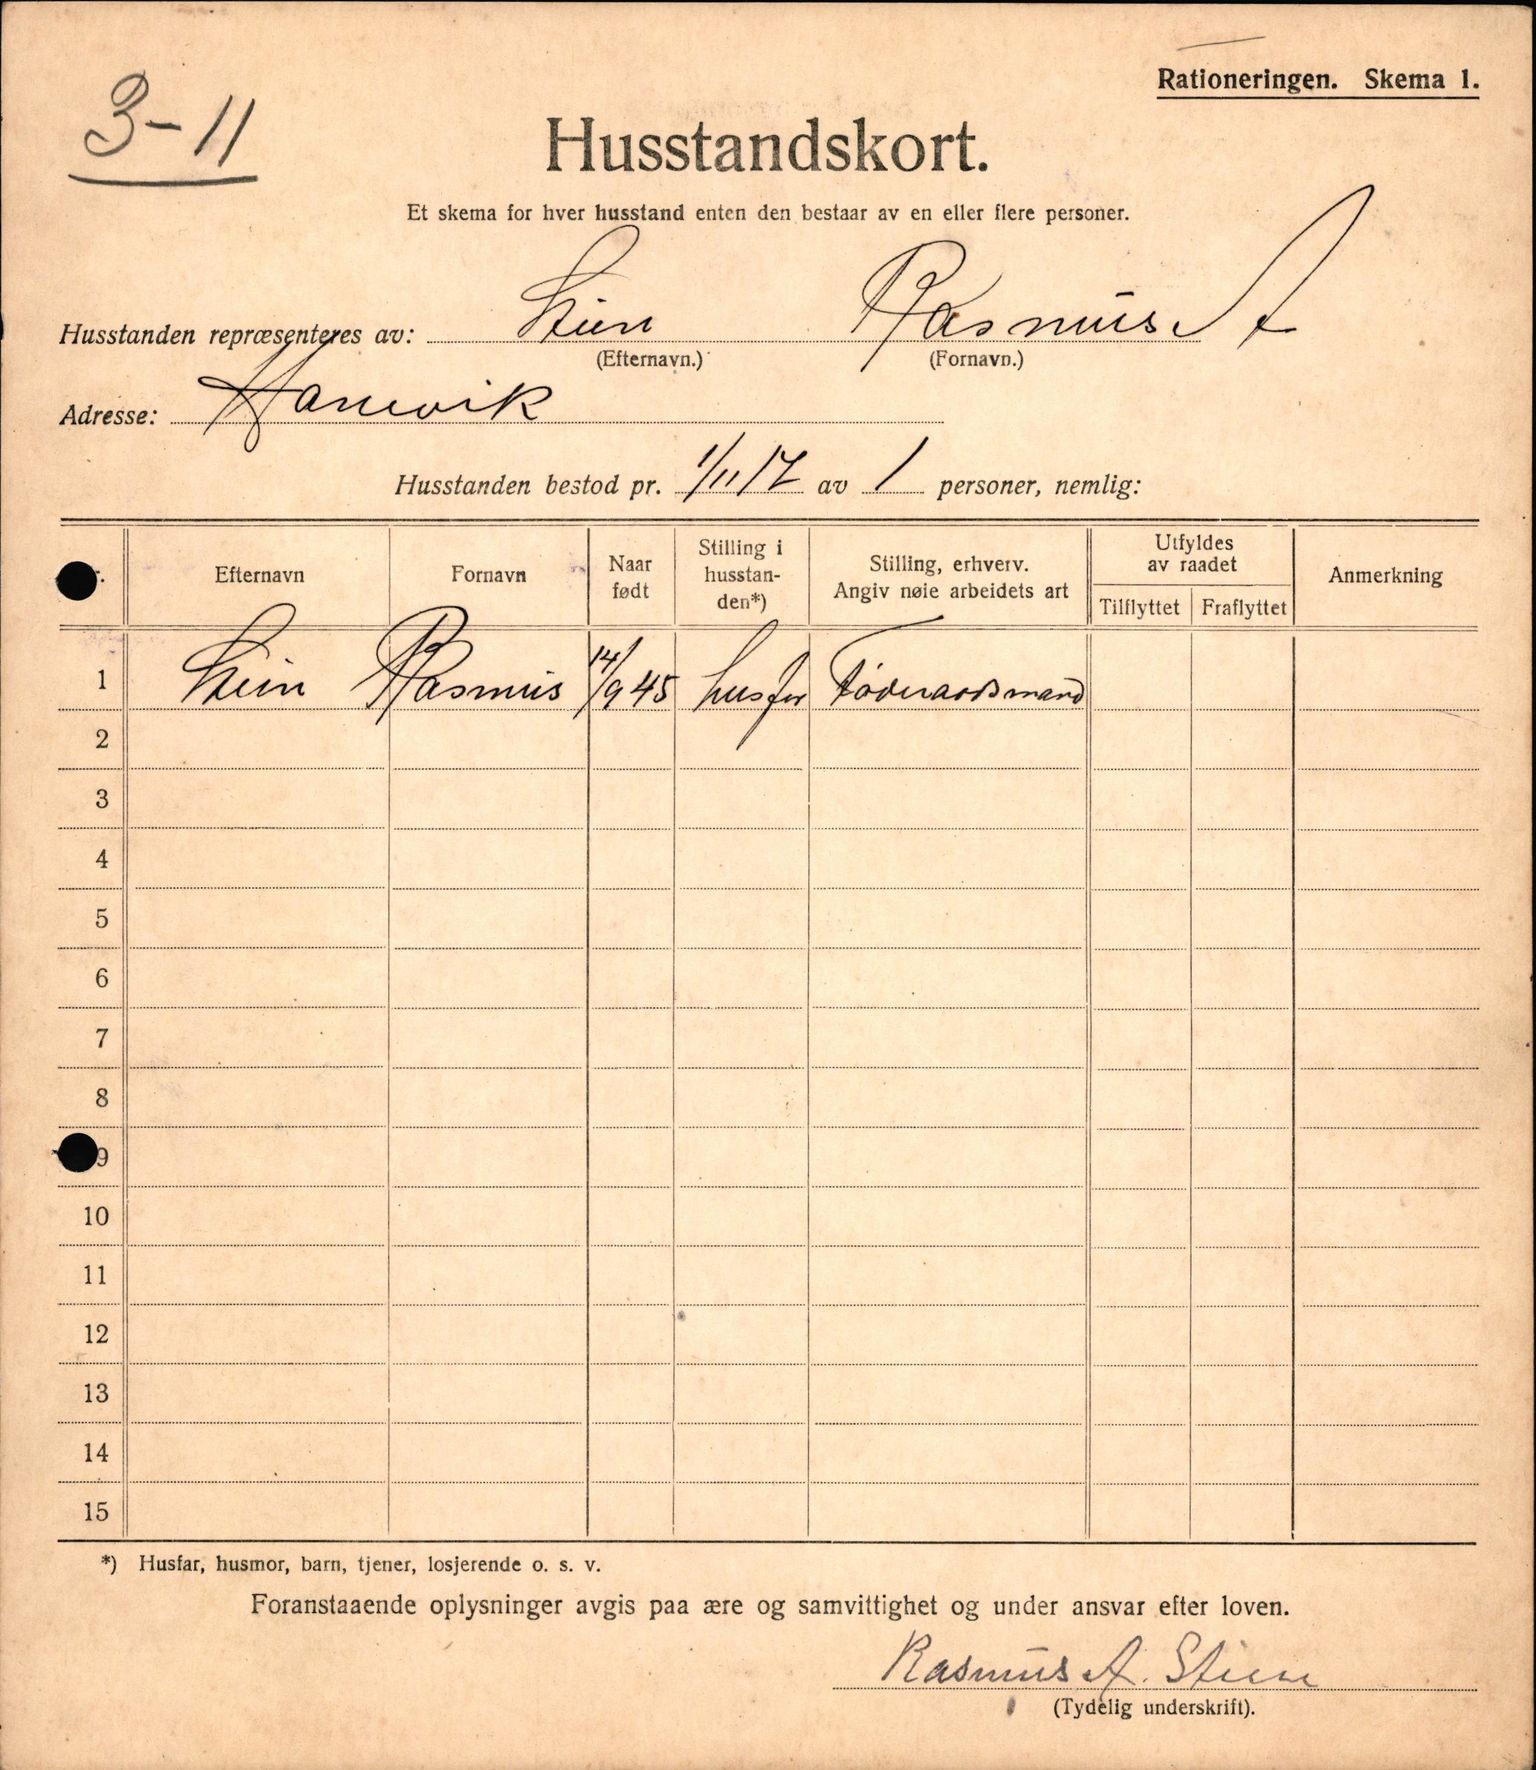 Rationeringen. Skema 1.
3-11
Husstandskort.
Et skema for hver husstand enten den bestaar av en eller flere personer.
Husstanden repræsenteres av: Stien Rasmus A
(Efternavn.) (Fornavn.)
Adresse: Hanevik
Husstanden bestod pr. 1/11 17 av 1 personer, nemlig:
Efternavn Fornavn Naar født Stilling i husstanden*) Stilling, erhverv. Angiv nøie arbeidets art Utfyldes av raadet Tilflyttet Fraflyttet Anmerkning
1 Stien Rasmus 14/9 45 husfar Føderaadsmand
2
3
4
5
6
7
8
9
10
11
12
13
14
15
*) Husfar, husmor, barn, tjener, losjerende o. s. v.
Foranstaaende oplysninger avgis paa ære og samvittighet og under ansvar efter loven.
Rasmus A. Stien
(Tydelig underskrift).